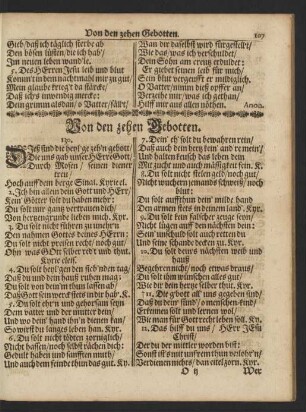 Von den zehen Gebotten. 107
Gieb daß ich täglich sterbe ab
Den bösen lüsten, die ich hab/
Im neuen leben wand'le.
6. Des HErren JEsu leib und blut
Komm't in dem nachtmahl mir zu gut/
Mein glaube krieg't da stärcke/
Daß ich's inwendig mercke:
Dein grimm alsdan/ o Vatter/ fällt/
Wan dir daselbst wird fürgestellt/
Wie das/ was ich verschuldet/
Dein Sohn am creutz erduldet:
Er giebet seinen leib für mich/
Sein blut vergeußt er mildiglich.
O Vatter/ nimm diß opffer an/
Verzeihe mir/ was ich gethan/
Hilff mir aus allen nöthen. Anon.
Von den zehen Gebotten.
130.
DIeß sind die heyl'ge zeh'n gebot/
Die uns gab unser HErre Gott/
Durch Mosen/ seinen diener
treu/
Hoch auff dem berge Sinai. Kyrieel.
1. Ich bin allein dein Gott und HErr/
Kein' Götter solt du haben mehr:
Du solt mir gantz vertrauen dich/
Von hertzengrunde lieben mich. Kyr.
3. Du solt nicht führen zu unehr'n
Den nahmen Gottes deines HErrn:
Du solt nicht preisen recht/ noch gut/
Ohn' was GOtt selber red't und thut.
Kyrie eleis.
4. Du solt heyl'gen den sieb'nden tag/
Daß du und dein hauß ruhen mag:
Du solt von dein'm thun lassen ab/
Daß Gott sein werck stets in dir hab'. K.
5. Du solt ehr'n und gehorsam seyn
Dem vatter und der mutter dein/
Und wo dein' hand ihn'n dienen kan/
So wirst du langes leben han. Kyr.
6. Du solt nicht tödten zorniglich/
Nicht hassen/ noch selbst rächen dich/
Gedult haben und sanfften muth/
Und auch dem feinde thun das gut. Kyr.
7. Dein' eh' solt du bewahren rein/
Daß auch dein hertz kein' and're mein'/
Und halten keusch das leben dein
Mit zucht und auch mässigkeit fein. K.
8. Du solt nicht stehlen geld/ noch gut/
Nicht wuchern jemands schweiß/ noch
blut:
Du solt auffthun dein' milde hand
Den armen stets in deinem land'. Kyr.
9. Du solt kein falscher zeuge seyn/
Nicht lügen auff den nächsten dein:
Sein' unschuld solt auch retten du
Und seine schande decken zu. Kyr.
10. Du solt dein's nächsten weib und
hauß
Begehren nicht/ noch etwas drauß/
Du solt ihm wünschen alles gut/
Wie dir dein hertze selber thut. Kyr.
11. Die gebot' all' uns gegeben sind/
Daß du deine sünd'/ o menschen-kind/
Erkennen solt und lernen wol/
Wie man für Gott recht leben soll. Ky.
12. Das hilff du uns/ HErr JESu
Christ/
Der du der mittler worden bist:
Sonst ist's mit unserm thun verlohr'n/
Verdienen nichts/ dan eitel zorn. Kyr.
O ij Wer